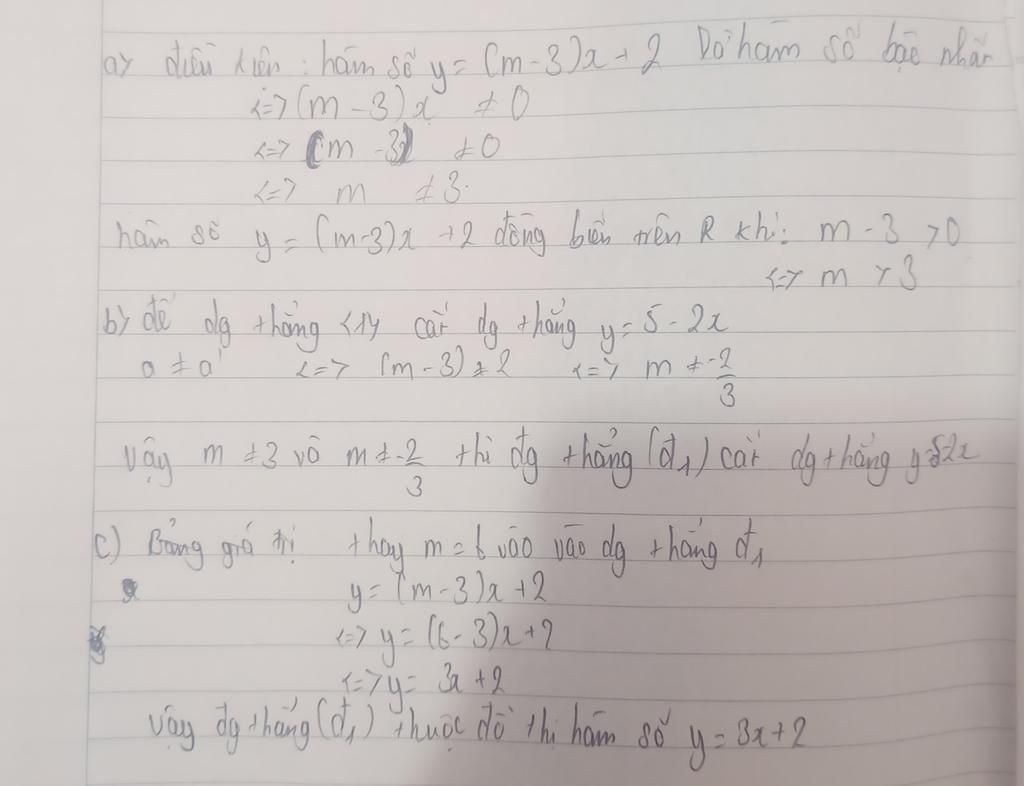 a> điều kiện : hàm số y = (m-3)x + 2 Do hàm số bậc nhất
<=> (m - 3)x ≠ 0
<=> (m - 3) ≠ 0
<=> m ≠ 3.
hàm số y = (m-3)x + 2 đồng biến trên R khi: m - 3 > 0
<=> m > 3
b> để dg thẳng <1> cắt dg thẳng y = 5 - 2x
a ≠ a' <=> (m - 3) ≠ 2 <=> m ≠ -2/3
Vậy m ≠ 3 và m ≠ -2/3 thì đg thẳng (đ1) cắt dg thẳng y=52x
c) Bảng giá trị thay m = 6 vào vào dg thẳng đ1
y = (m - 3)x + 2
<=> y = (6 - 3)x + 2
<=> y = 3x + 2
Vậy đg thẳng (đ1) thuộc đồ thị hàm số y = 3x + 2